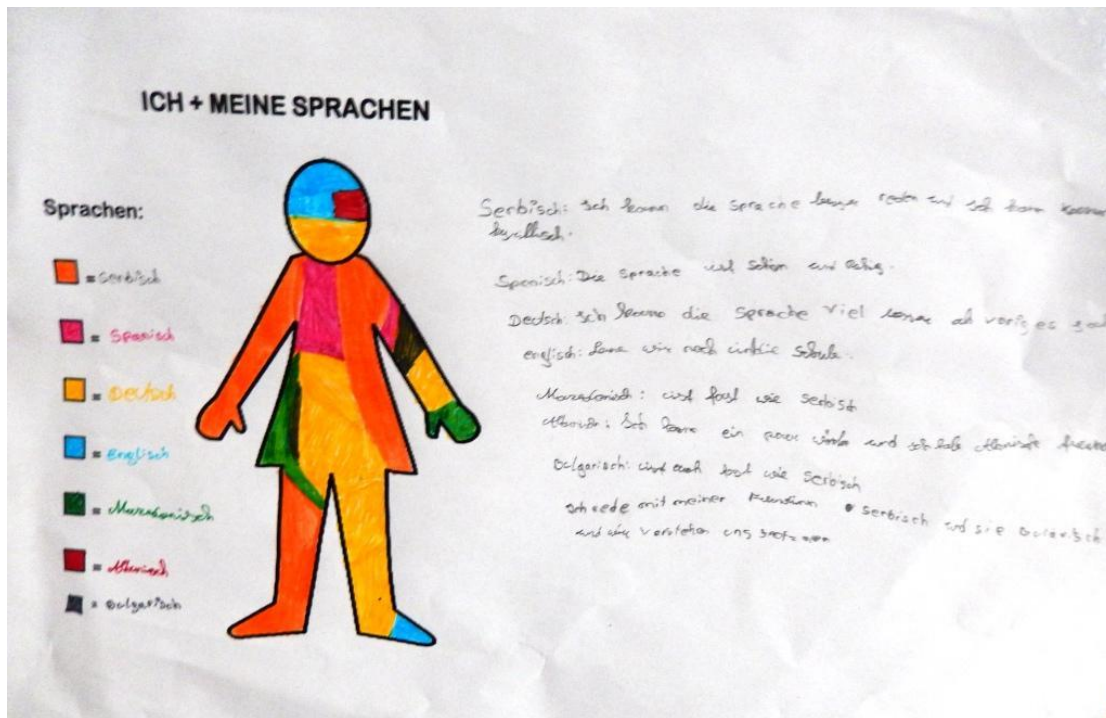 ICH + MEINE SPRACHEN
Sprachen:
= Serbisch
= Spanisch
= Deutsch
= Englisch
= Mazedonisch
= Albanisch
= Bulgarisch
Serbisch: Ich kann die Sprache besser reden und ich kann
Spanisch: Die Sprache ist schön und
Deutsch: Ich kann die Sprache viel besser als voriges
englisch: Lerne wir noch in die Schule.
Mazedonisch: ist fast wie Serbisch
Ich kann ein paar und ich habe
Bulgarisch: ist auch fast wie Serbisch
Ich rede mit meiner Freundin serbisch und sie
und wir verstehen uns